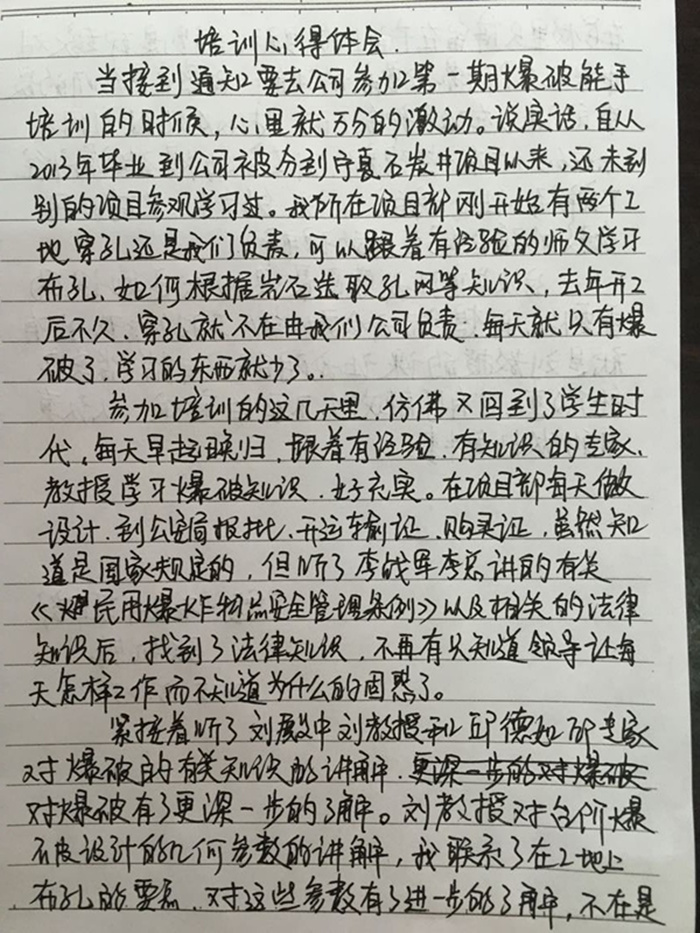 培训心得体会.
当接到通知要去公司参加第一期爆破能手
培训的时候，心里就万分的激动。说实话，自从
2013年毕业到公司被分到宁夏石炭井项目以来，还未到
别的项目参观学习过。我所在项目部刚开始有两个工
地穿孔还是我们负责，可以跟着有经验的师父学习
布孔、如何根据岩石选取孔网等知识，去年开工
后不久，穿孔就不在由我们公司负责，每天就只有爆
破了，学习的东西就少了。
参加培训的这几天里，仿佛又回到了学生时
代，每天早起晚归，跟着有经验、有知识的专家、
教授学习爆破知识，好充实。在项目部每天做
设计、到公安局报批、开运输证、购买证，虽然知
道是国家规定的，但听了李战军李总讲的有关
《民用爆炸物品安全管理条例》以及相关的法律
知识后，找到了法律知识，不再有只知道领导让每
天怎样工作而不知道为什么的困惑了。
紧接着听了刘殿中刘教授和邱德如邱专家
对爆破的有关知识的讲解，更深一步的对爆破
对爆破有了更深一步的了解。刘教授对台阶爆
破设计的几何参数的讲解，我联系了在工地上
布孔的要点，对这些参数有了进一步的了解，不在是